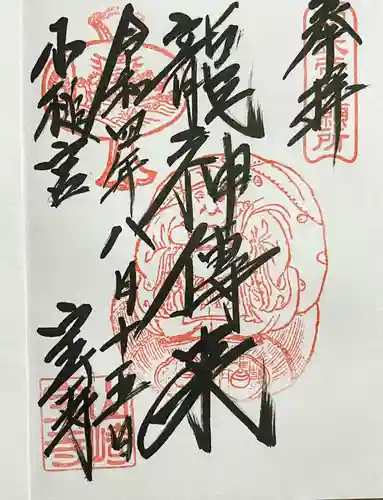 奉拝
龍神傳来
令和四年八月十五日
小槌宮
宝寺